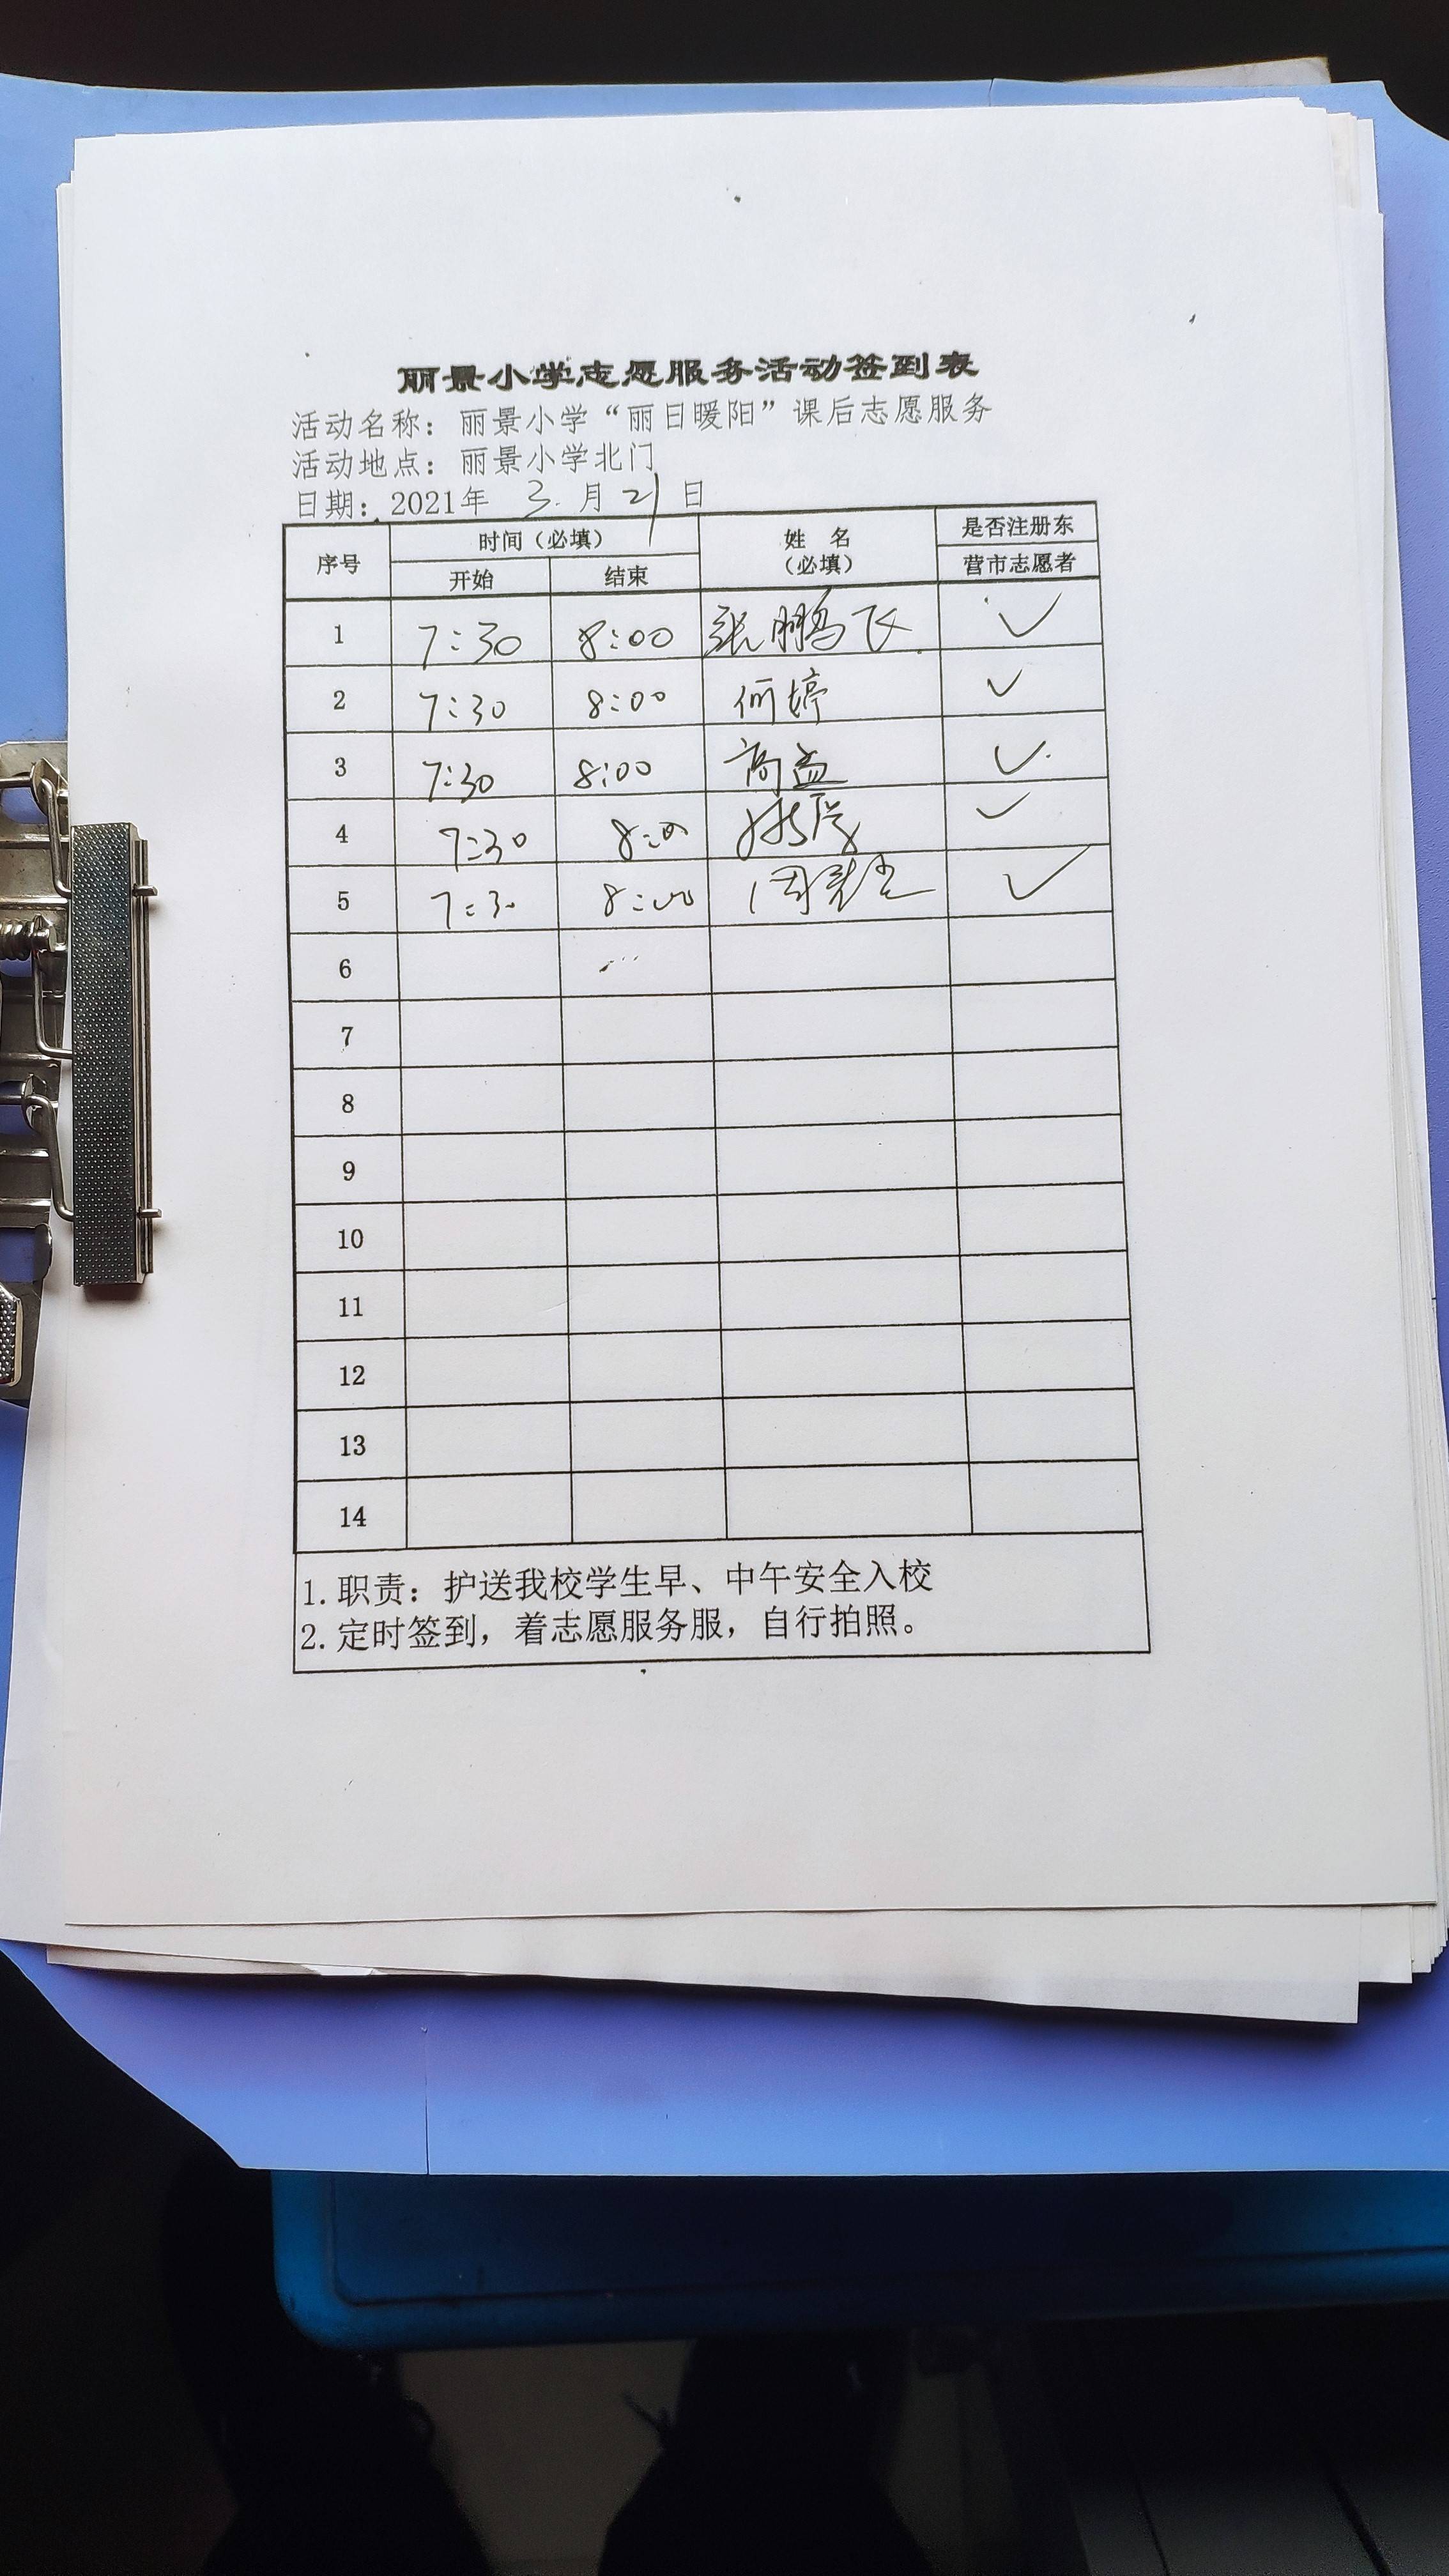 丽景小学志愿服务活动签到表
活动名称：丽景小学“丽日暖阳”课后志愿服务
活动地点：丽景小学北门
日期：2021年 3 月 21 日
序号 时间（必填） 姓 名（必填） 是否注册东营市志愿者
开始 结束
1 7:30 8:00 张鹏飞 ✓
2 7:30 8:00 何婷 ✓
3 7:30 8:00 高益 ✓
4 7:30 8:00 ✓
5 7:30 8:00 ✓
6
7
8
9
10
11
12
13
14
1. 职责：护送我校学生早、中午安全入校
2. 定时签到，着志愿服务服，自行拍照。